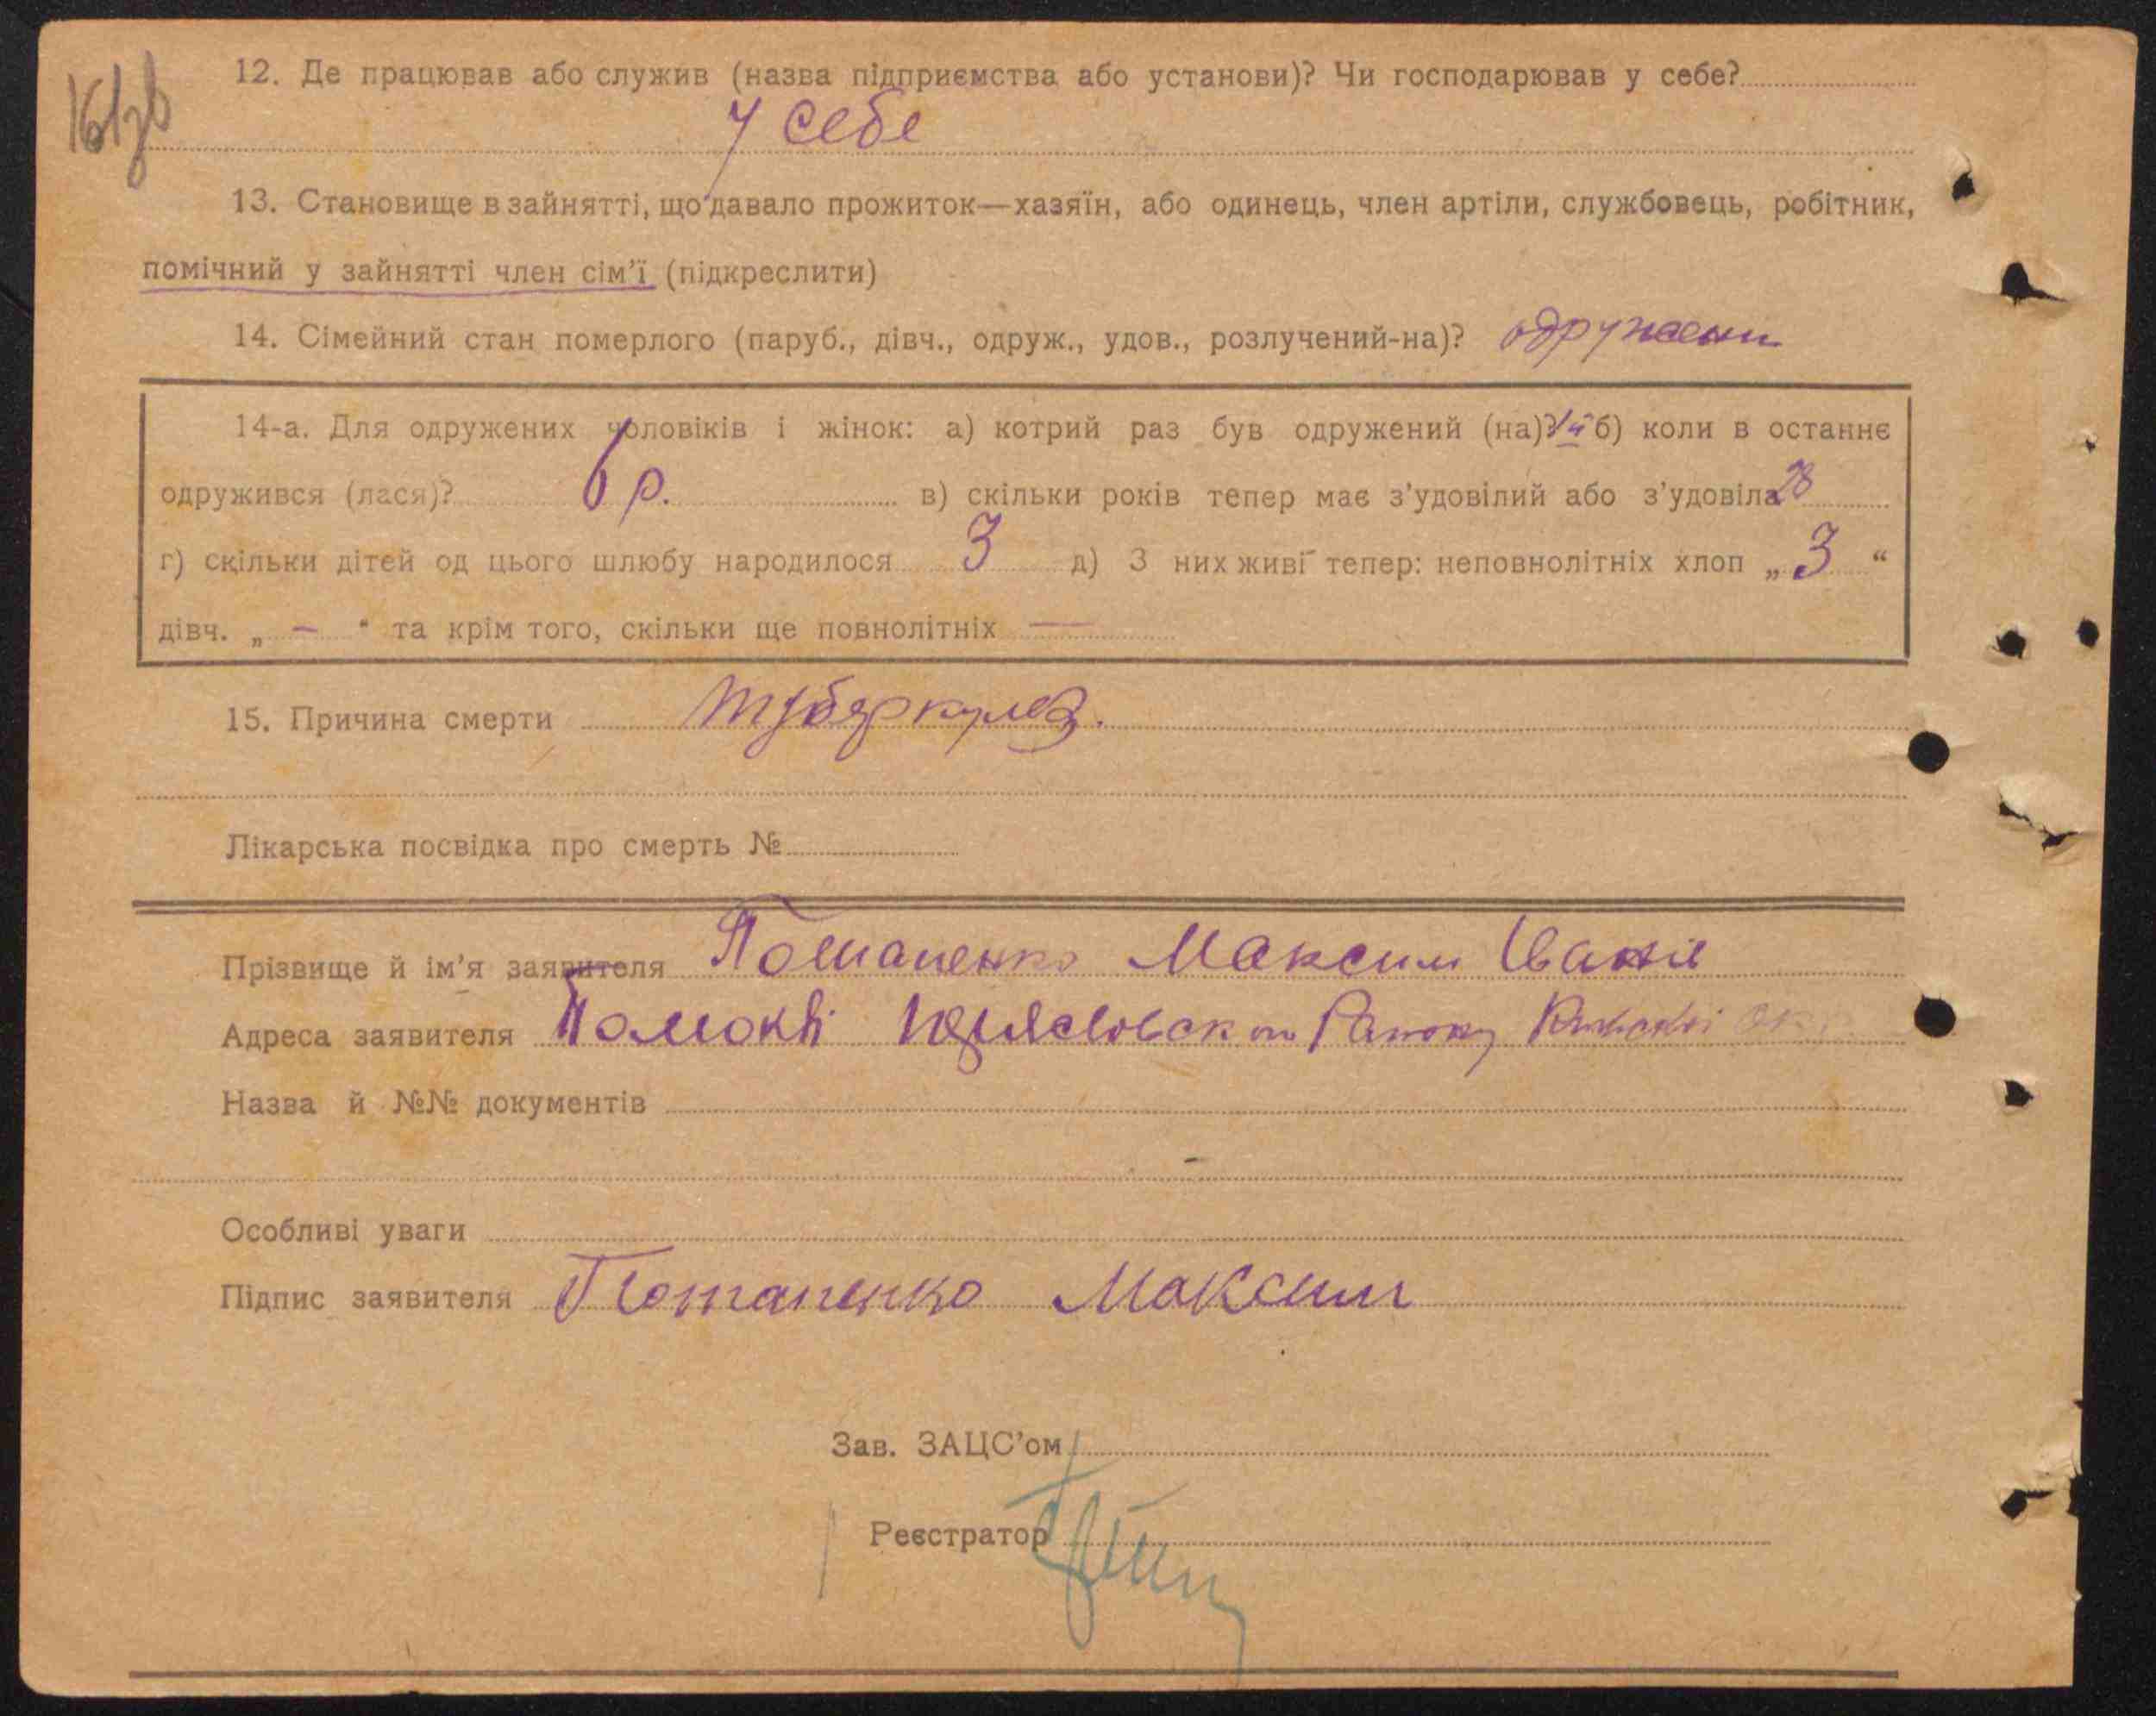 16/зв
12. Де працював або служив (назва підприємства або установи)? Чи господарював у себе?
у себе
13. Становище в зайнятті, що давало прожиток—хазяїн, або одинець, член артіли, службовець, робітник,
помічний у зайнятті член сім'ї (підкреслити)
14. Сімейний стан померлого (паруб., дівч., одруж., удов., розлучений-на)? одружени
14-а. Для одружених чоловіків і жінок: а) котрий раз був одружений (на)? 1й б) коли в останнє
одружився (лася)? 6 р. в) скільки років тепер має з'удовілий або з'удовіла 28
г) скільки дітей од цього шлюбу народилося 3 д) З них живі тепер: неповнолітніх хлоп „ 3 “
дівч. „ — “ та крім того, скільки ще повнолітніх —
15. Причина смерти тубяркулоз.
Лікарська посвідка про смерть №
Прізвище й ім'я заявителя Потапенко Максим
Адреса заявителя
Назва й №№ документів
Особливі уваги
Підпис заявителя Потапенко Максим
Зав. ЗАЦС'ом
Реєстратор